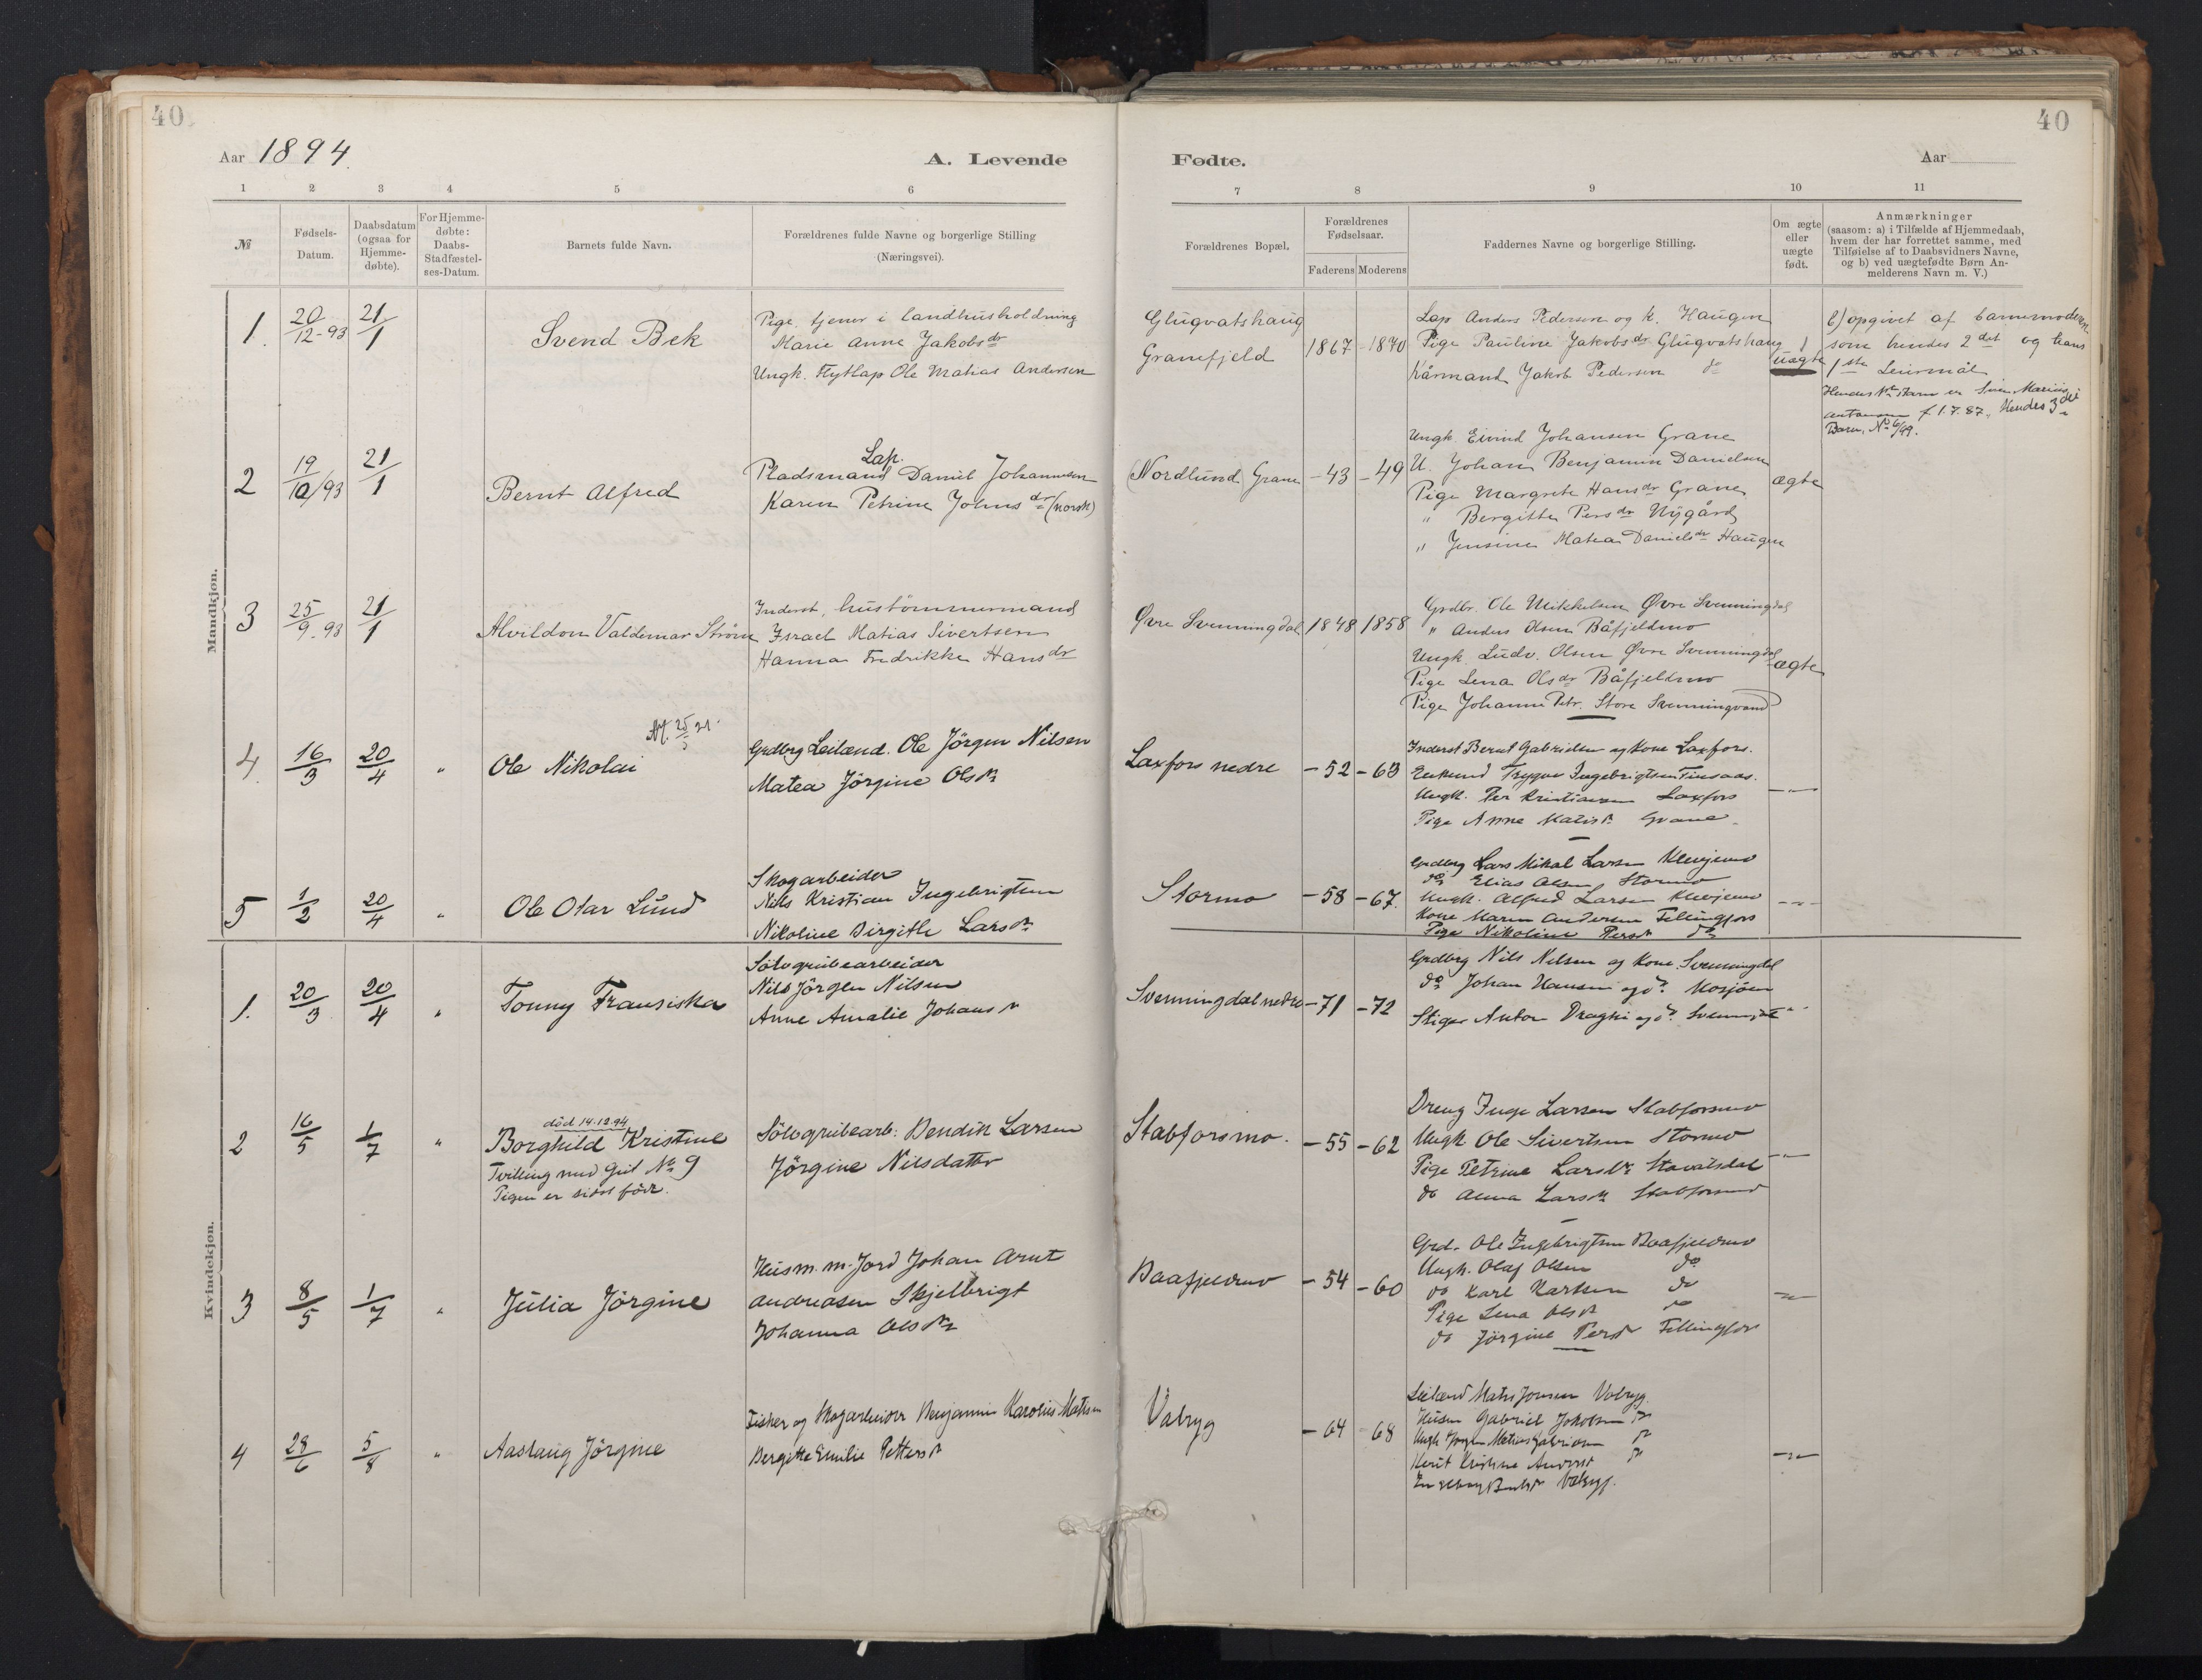 40
Aar 1894.
A. Levende
1 2 3 4 5 6
№
Fødsels-
Datum.
Daabsdatum
(ogsaa for
Hjemme-
døbte).
For Hjemme-
døbte:
Daabs-
Stadfæstel-
ses-Datum.
Barnets fulde Navn.
Forældrenes fulde Navne og borgerlige Stilling
(Næringsvei).
Mandkjøn.
1. 20/12-93 21/1 Svend Bek
Pige. tjener i landhusholdning
Marie Anne Jakobsdr
Ungk. Flytlap Ole Matias Andersen
2 19/10/93 21/1 Bernt Alfred
Lap.
Pladsmand Daniel Johannesen
Karen Petrine Johnsdr (norsk)
3 25/9-93 21/1 Alvildon Valdemar Strøm
Inderst, hustømmermand
Israel Matias Sivertsen
Hanna Fredrikke Hansdr
4. 16/3 20/4 " Ole Nikolai
Grdbrg Leilænd. Ole Jörgen Nilsen
Matea Jörgine Olsdr
5 1/2 20/4 " Ole Otar Lund
Skogarbeider
Nils Kristian Ingebrigtsen
Nikoline Birgithe Larsdr
Kvindekjøn.
1. 20/3 20/4 " Tonny Fransiska
Sölvgrubearbeider
Nils Jörgen Nilsen
Anne Amalie Johansdr
2 16/5 1/7 "
död 14.12.94
Borghild Kristine
Tvilling med Gut № 9
Pigen er sidst född.
Sölvgrubearb: Bendik Larsen
Jörgine Nilsdatter
3 8/5 1/7 " Julia Jörgine
Husm. m. Jord Johan Arnt
Andreasen Skjelbrigt
Johanna Olsdr
4 28/6 5/8 " Aaslaug Jörgine
Fisker og Skogarbeider Benjamin Karolius Matisen
Bergitte Emilie Pettersdr
40
Fødte.
Aar
7 8 9 10 11
Forældrenes Bopæl.
Forældrenes
Fødselsaar.
Faderens Moderens
Faddernes Navne og borgerlige Stilling.
Om ægte
eller
uægte
født.
Anmærkninger
(saasom: a) i Tilfælde af Hjemmedaab,
hvem der har forrettet samme, med
Tilføielse af to Daabsvidners Navne,
og b) ved uægtefødte Børn An-
melderens Navn m. V.)
Glugvatshaug
Granefjeld
1867 - 1870
Lap Anders Pedersen og k. Haugen
Pige Pauline Jakobsdr Glugvatshaug
Kårmand Jakob Pedersen do
uægte
b) opgivet af barnemoderen
som hendes 2det og hans
1ste Leiermål
Hendes №
f. 1.7.87. Hendes 3die
Barn, № 6/99.
Nordlund Grane -43 -49
Ungk. Eivind Johansen Grane
U. Johan Benjamin Danielsen
Pige Margrete Hansdr Grane
" Bergitte Persdr Nygård
" Jensine Matea Danielsdr Haugen
ægte
Øvre Svenningdal 1848 1858
Grdbr. Ole Mikkelsen Øvre Svenningdal
" Anders Olsen Båfjeldmo
Ungk. Ludv. Olsen Øvre Svenningdal
Pige Lena Olsdr Båfjeldmo
Pige Johanne Petr. Store Svenningvand
ægte
Laxfors nedre -52 -63
Inderst Bernt Gabrielsen og Kone Laxfors.
Enkemd Trygve Ingebrigtsen
Ungk. Per Kristiansen Laxfors
Pige Anne Matisdr Grane
—"—
Stormo -58 -67.
Grdbrg Lars Mikal Larsen
do Elias Olsen Stormo
Ungk. Alfred Larsen
Kone Maren Andersen Fellingfors
Pige Nikoline Persdr do
—"—
Svenningdal nedre -71 -72
Grdbrg Nils Nilsen og Kone Svenningdal
do Johan Hansen og do Mosjöen
Stiger Anton
Stabforsmo. -55 -62
Dreng Inge Larsen Stabforsmo
Ungk Ole Sivertsen Stormo
Pige Petrine Larsdr Stavatsdal
do Anna Larsdr Stabforsmo
—"—
Baafjeldmo -54 -60
Grd. Ole Ingebrigtsen Baafjeldmo
Ungk. Olaf Olsen do
do Karl Karlsen do
Pige Lena Olsdr do
do Jörgine Persdr Fellingfors
—"—
Vabryg -64 68
Leilænd Matis Jonsen Vabryg.
Husm Gabriel Jakobsen do
Ungk Jörgen Matias Gabrielsen do
Kristine Andersdr do
Vabryg.
—"—